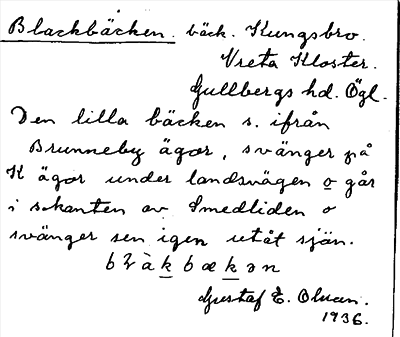 Blackbäcken. bäck. Kungsbro.
Vreta Kloster.
Gullbergs hd. Ögl.
Den lilla bäcken s. ifrån
Brunneby ägor, svänger på
K ägor under landsvägen o går
i s.kanten av Smedliden o
svänger sen igen utåt sjön.
bὰkbækən
Gustaf E. Olsson.
1936.